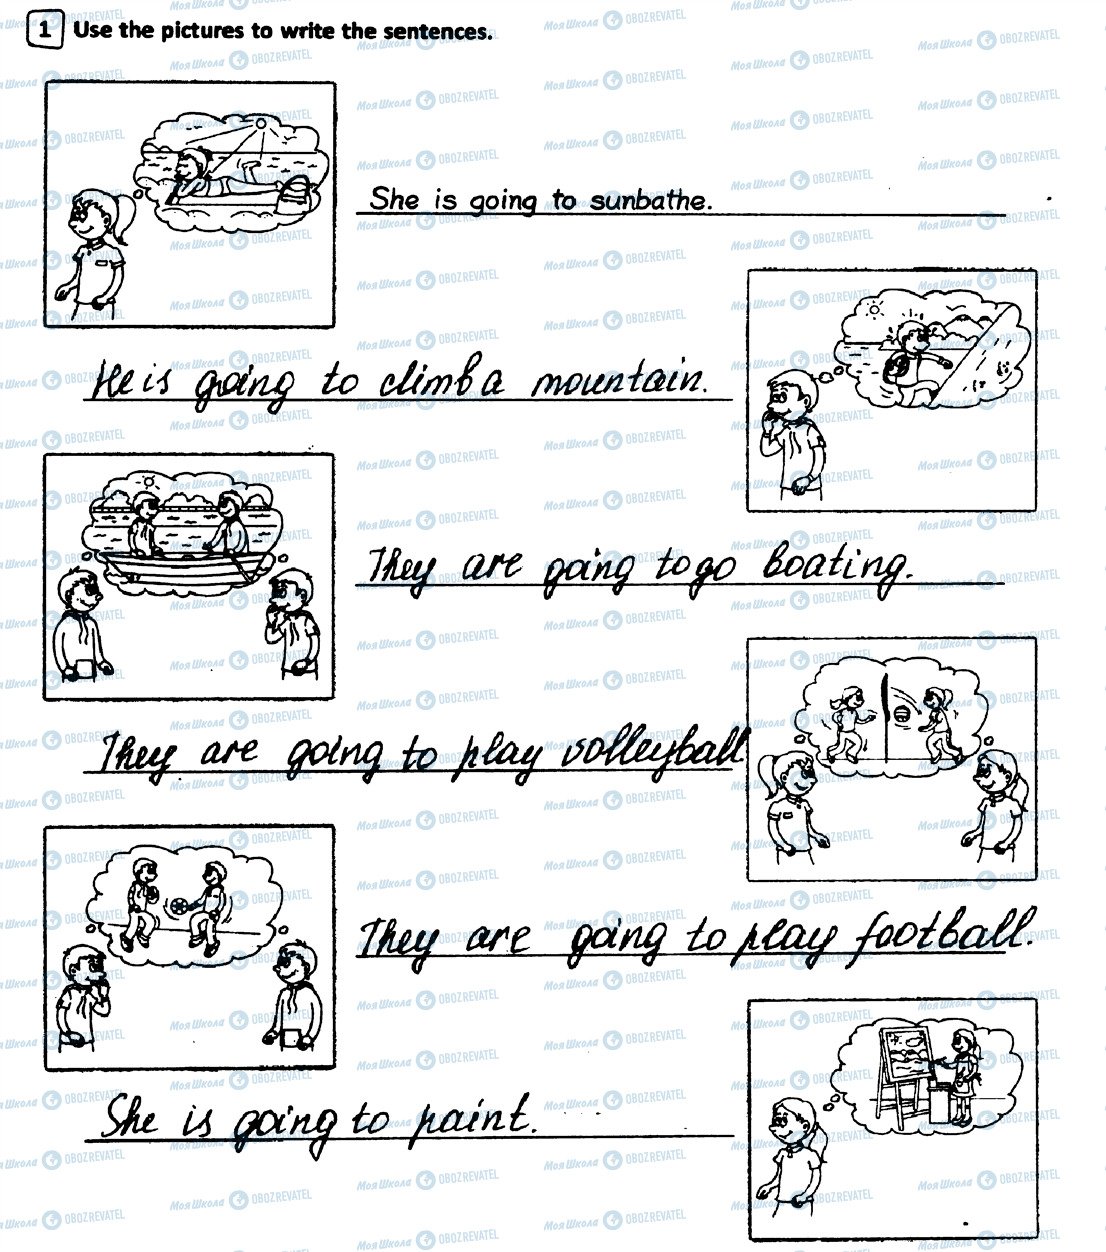 1 Use the pictures to write the sentences.
She is going to sunbathe.
He is going to climb a mountain.
They are going to go boating.
They are going to play volleyball.
They are going to play football.
She is going to paint.
Моя Школа OBOZREVATEL